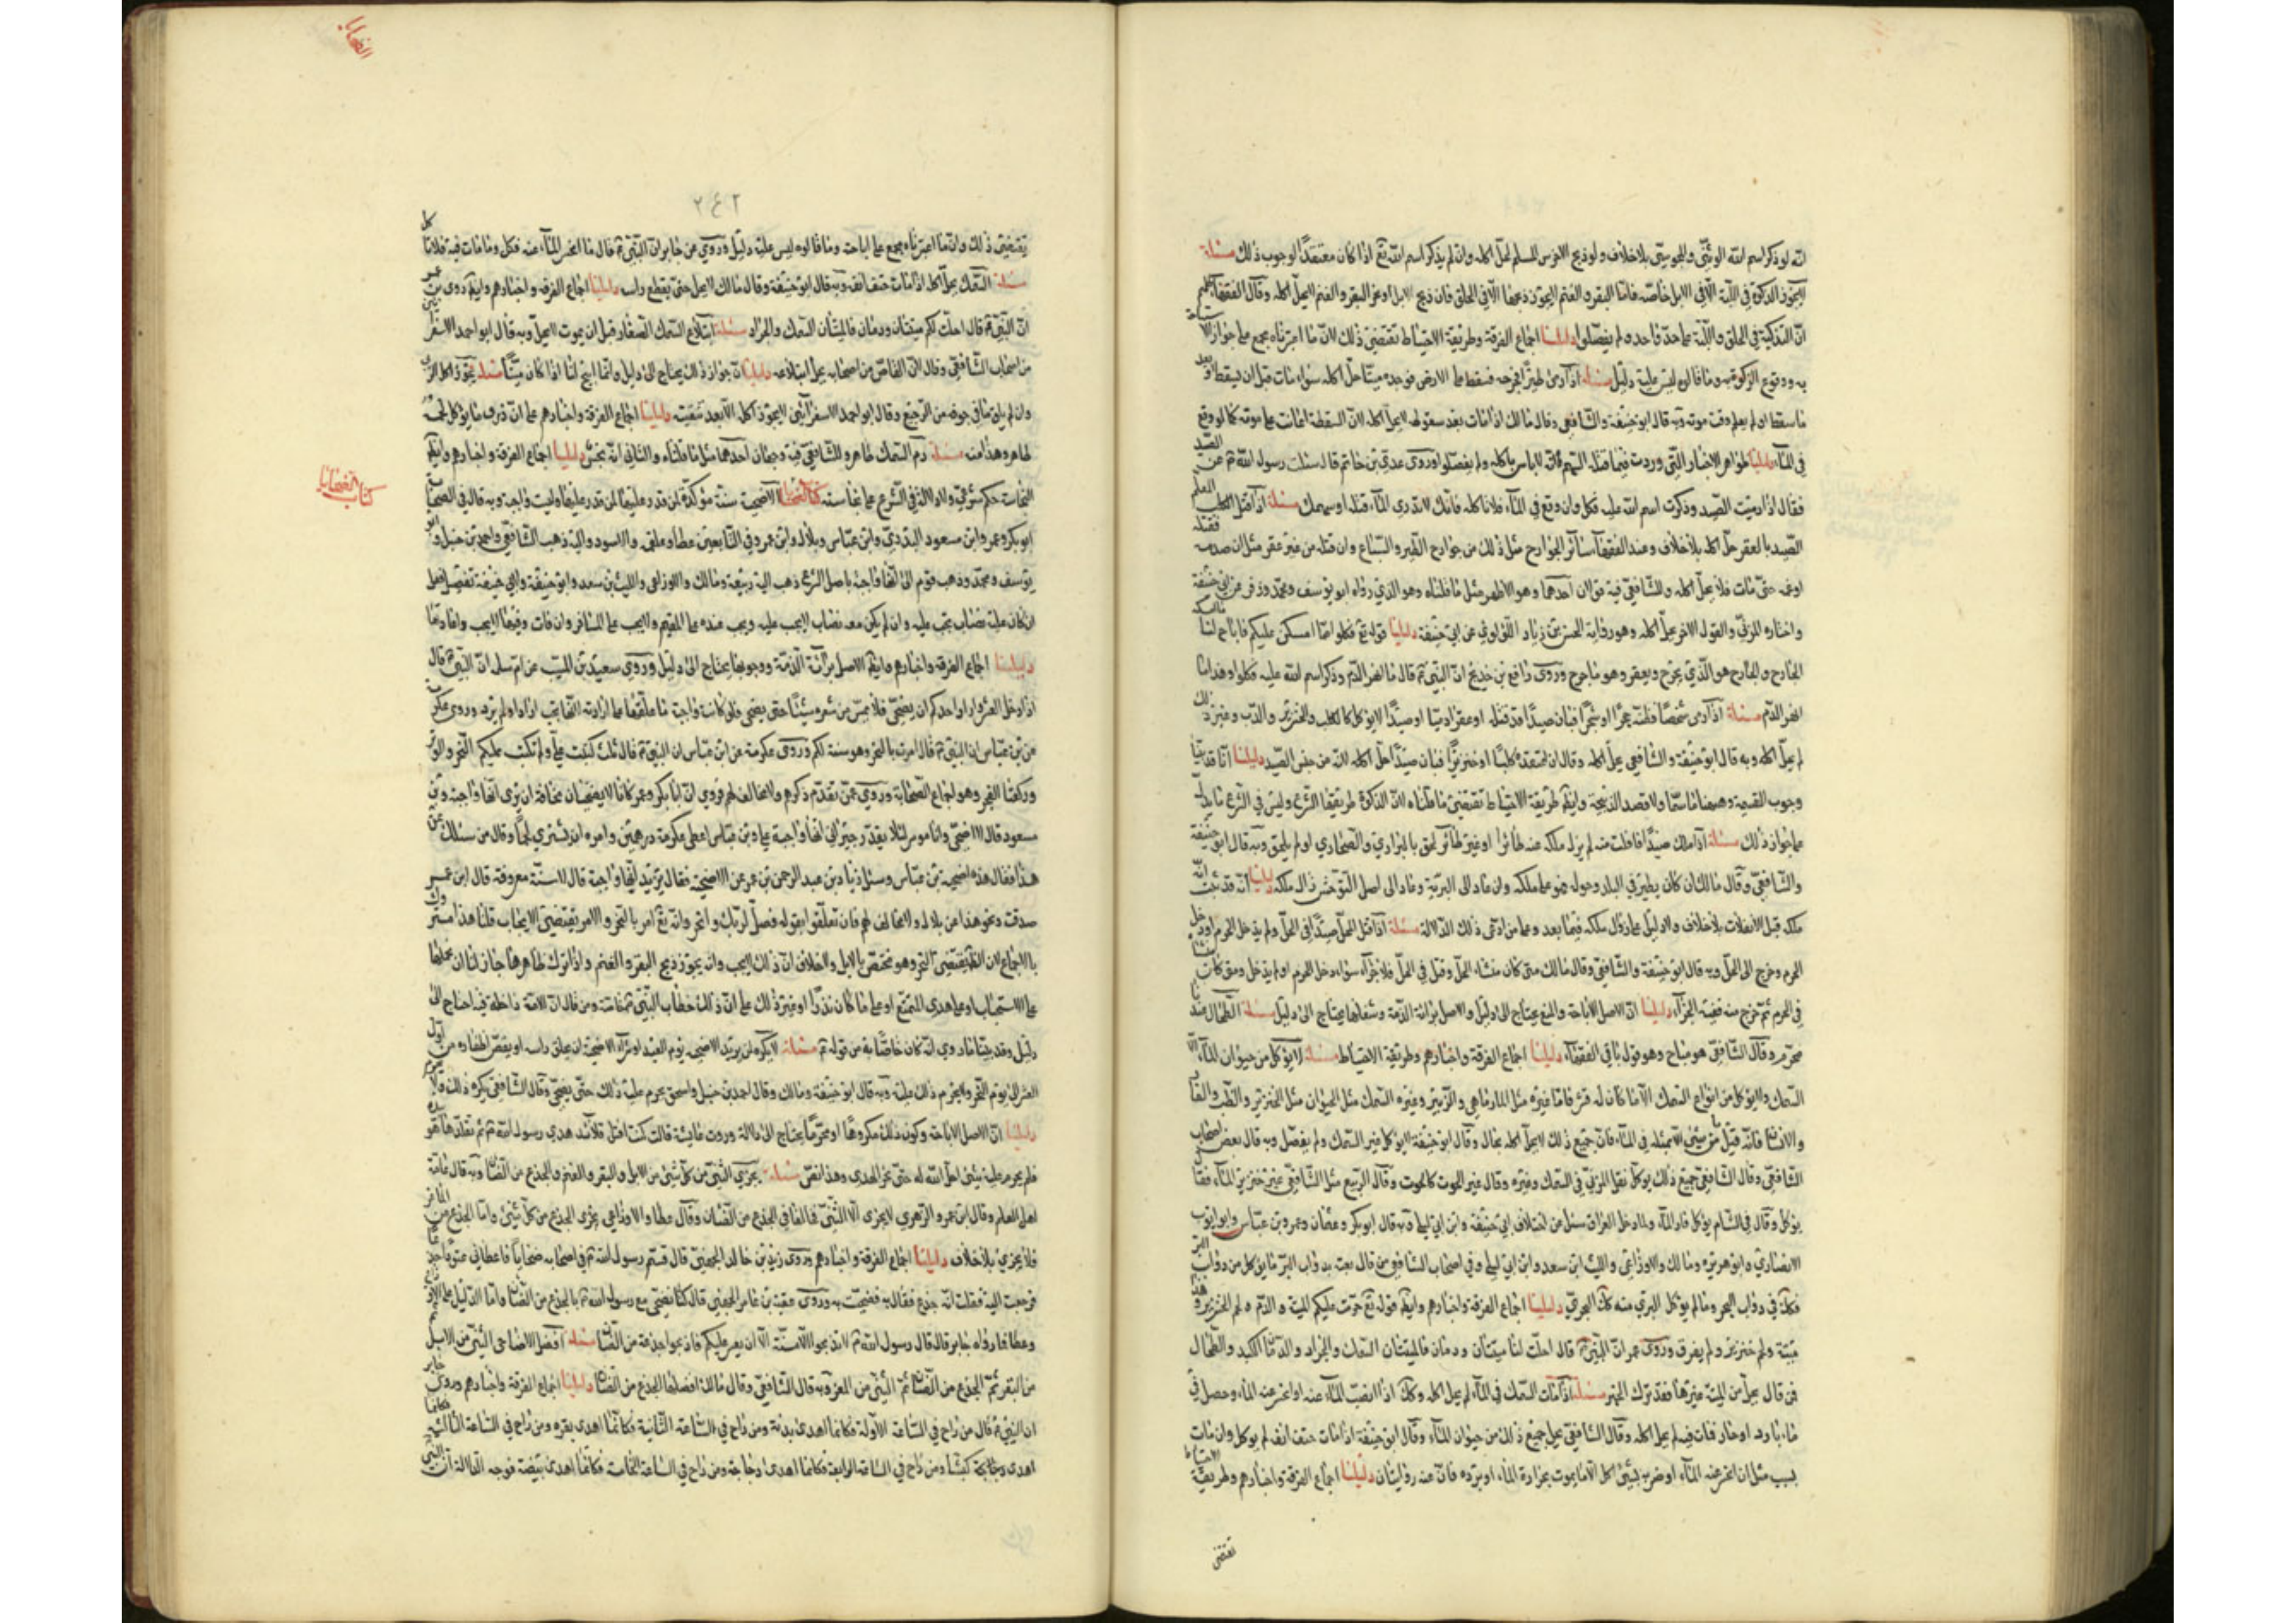 انه لو ذكر اسم الله الوثني والمجوسي بلاخلاف ولو ذبح الاخرس المسلم لحل اكله وان لم يذكر اسم الله تع اذا كان معتقدا لوجوب ذلك مسئلة
لا يجوز الذكوة في اللبة الا في الابل خاصة فاما البقر والغنم لا يجوز ذبحها الا في الحلق فان ذبح الابل او نحر البقر والغنم لا يحل اكله وقال الفقهاء كلهم
ان التذكية في الحلق واللبة على حد واحد ولم يفصلوا دليلنا اجماع الفرقة وطريقة الاحتياط تقتضي ذلك لان ما اعتبرناه مجمع على جواز
وقوع الزكوة به وما قالوه ليس عليه دليل مسئلة اذا رمى طيرا فجرحه فسقط على الارض فوجده ميتا حل اكله سواء مات قبل ان يسقط او بعد
ما سقط او لم يعلم وقت موته وبه قال ابو حنيفة والشافعي وقال مالك اذا مات بعد سقوطه لا يحل اكله لان السقطة اعانت على موته كما لو وقع
في الماء دليلنا ظواهر الاخبار التي وردت فيما قتله السهم انه لاباس باكله ولم يفصلوا وروى عدي بن حاتم قال سئلت رسول الله عن الصيد
فقال اذا رميت الصيد وذكرت اسم الله عليه فكل وان وقع في الماء فلا تاكله فانك لا تدري الماء قتله او سهمك مسئلة اذا قتل الكلب المعلم
الصيد بالعقر حل اكله بلاخلاف وعند الفقهاء سائر الجوارح مثل ذلك من جوارح الطير والسباع وان قتله من غير عقر مثل ان صدمه فقتله
او غمه حتى مات فلا يحل اكله وللشافعي فيه قولان احدهما وهو الاظهر مثل ما قلناه وهو الذي رواه ابو يوسف ومحمد وزفر عن ابي حنيفة
واختاره المزني والقول الاخر يحل اكله وهو رواية الحسن بن زياد اللؤلؤي عن ابي حنيفة دليلنا قوله تع فكلوا مما امسكن عليكم فاباح لنا
الجارح والجارح هو الذي يجرح ويعقر وهو ما جرح وروى رافع بن خديج ان النبي قال ما انهر الدم وذكر اسم الله عليه فكلوا
انهر الدم مسئلة اذا رمى شخصا فظنه حجرا او شجرا فبان صيدا قد قتله او عقر ادميا او صيدا لا يؤكل كالكلب والخنزير والدب وغير ذلك
لم يحل اكله وبه قال ابو حنيفة والشافعي يحل اكله وقال ان اعتقده كلبا او خنزيرا فبان صيدا حل اكله لانه من جنس الصيد دليلنا
وجوب التسمية وهيهنا ما سما ولا قصد الذبيحة وايضا طريقة الاحتياط تقتضي ما قلناه لان الذكوة طريقها الشرع وليس في الشرع ما يدل
على جواز ذلك مسئلة اذا ملك صيدا فافلت منه لم يزل ملكه عنه طائرا او غير طائر لحق بالبراري والصحاري او لم يلحق وبه قال ابو حنيفة
والشافعي وقال مالك ان كان يطير في البلد وحوله فهو على ملكه وان عاد الى البرية وعاد الى اصل التوحش زال ملكه دليلنا انه قد ثبت
ملكه قبل الانفلات بلاخلاف ولا دليل على زوال ملكه فيما بعد وعلى من ادعى ذلك الدلالة مسئلة اذا قتل المحل صيدا في الحل ولم يدخل الحرم
الحرم وخرج الى الحل وبه قال ابو حنيفة والشافعي وقال مالك متى كان منشاء الحل وقتل في الحل فلا جزاء سواء دخل الحرم او لم يدخل ومتى كان
في الحرم ثم خرج منه ففيه الجزاء دليلنا ان الاصل الاباحة والمنع يحتاج الى دليل والاصل برائة الذمة وشغلها يحتاج الى دليل مسئلة الطحال عندنا
محرم وقال الشافعي هو مباح وهو قول باقي الفقهاء دليلنا اجماع الفرقة واخبارهم وطريقة الاحتياط مسئلة لا يؤكل من حيوان الماء الا
السمك ولا يؤكل من انواع السمك الا ما كان له قشر فاما غيره مثل المارماهي والزمير وغيره السمك مثل الحيوان مثل الخنزير والكلب والفار
والانسان فانه قيل ما من شيئ الا مثله في الماء فان جميع ذلك لا يحل اكله بحال وقال ابو حنيفة لا يؤكل غير السمك ولم يفصل وبه قال بعض اصحاب
الشافعي وقال الشافعي جميع ذلك يؤكل نقل المزني في السمك وغيره وقال غير الحوت كالحوت وقال الربيع سئل الشافعي عن خنزير الماء فقال
يؤكل وقال في الشام يؤكل فار الماء ولما دخل العراق سئل عن اختلاف ابي حنيفة وابن ابي ليلى وبه قال ابو بكر وعثمان وعمر وبن عباس وابو ايوب
الانصاري وابو هريرة ومالك والاوزاعي والليث ابن سعد وابن ابي ليلى وفي اصحاب الشافعي من قال يعتبر بدواب البر ما يؤكل من دواب البر
فكك في دواب البحر وما لم يؤكل البري منه كك البحري دليلنا اجماع الفرقة واخبارهم وايضا قوله تع حرمت عليكم الميتة والدم ولحم الخنزير
ميتة ولحم خنزير ولم يفرق وروى عمر ان النبي قال احلت لنا ميتتان ودمان فالميتتان السمك والجراد والدمان الكبد والطحال
فمن قال يحل من الميتة غيرها فقد ترك الخبر مسئلة اذا مات السمك في الماء لم يحل اكله وكك اذا انضب الماء عنه او انحسر عنه الماء وحصل في
ماء بارد او حار فمات فيه لم يحل اكله وقال الشافعي يحل جميع ذلك من حيوان الماء وقال ابو حنيفة اذا مات حتف انفه لم يؤكل وان مات
بسبب مثل ان انحسر عنه الماء او ضربه بشيئ اكل الا ما يموت بحرارة الماء او برده فان عنه روايتان دليلنا اجماع الفرقة واخبارهم وطريقة الاحتياط
تقتضي
الضحايا
٢٤٢
تقتضي ذلك وان ما اعتبرناه مجمع على اباحته وما قالوه ليس عليه دليل وروي عن جابر ان النبي قال ما انحسر الماء عنه فكل وما مات فيه فلا تاكل
مسئلة السمك يحل اكله اذا مات حتف انفه وبه قال ابو حنيفة وقال مالك لا يحل حتى يقطع راسه دليلنا اجماع الفرقة واخبارهم وايضا روى بن عمر
ان النبي قال احلت لكم ميتتان ودمان فالميتتان السمك والجراد مسئلة ابتلاع السمك الصغار قبل ان يموت لا يحل وبه قال ابو احمد الاسفرايني
من اصحاب الشافعي وقال ابن القاص من اصحابه يحل ابتلاعه دليلنا ان جواز ذلك يحتاج الى دليل وانما ابيح لنا اذا كان ميتا مسئلة يجوز اكل
وان لم يلق ما في جوفه من الرجيع وقال ابو احمد الاسفرايني لا يجوز اكله الا بعد تنقيته دليلنا اجماع الفرقة واخبارهم على ان ذرق ما يؤكل لحمه
طاهر وهذا منه مسئلة دم السمك طاهر وللشافعي فيه وجهان احدهما مثل ما قلناه والثاني انه نجس دليلنا اجماع الفرقة واخبارهم وايضا
كتاب الضحايا
النجاسة حكم شرعي ولا دلالة في الشرع على نجاسته كتاب الضحايا الاضحية سنة مؤكدة لمن قدر عليها وليست واجبة وبه قال في الصحابة
ابو بكر وعمر وابن مسعود البدري وابن عباس وبلال وابن عمر وفي التابعين عطا وعلقمة والاسود واليه ذهب الشافعي واحمد بن حنبل وابو
يوسف ومحمد وذهب قوم الى انها واجبة باصل الشرع ذهب اليه ربيعة ومالك والاوزاعي والليث بن سعد وابو حنيفة ولابي حنيفة تفصيل فقال
ان كان عليه نصاب تجب عليه وان لم يكن معه نصاب لا يجب عليه ويجب عنده على المقيم ولا يجب على المسافر وان فات وقتها لا يجب
دليلنا اجماع الفرقة واخبارهم وايضا الاصل برائة الذمة ووجوبها يحتاج الى دليل وروى سعيد بن المسيب عن ام سلمة ان النبي قال
اذا دخل العشر واراد احدكم ان يضحي فلا يمس من شعره شيئا حتى يضحي فلو كانت واجبة ما علقها على ارادته
عن بن عباس ان النبي قال امرت بالنحر وهو سنة لكم وروى عكرمة عن ابن عباس ان النبي قال ثلث كتبت علي ولم تكتب عليكم النحر والوتر
وركعتا الفجر وهو اجماع الصحابة وروي عمن تقدم ذكرهم ولا مخالف لهم فروي ان ابا بكر وعمر كانا لا يضحيان مخافة ان يرى انها واجبة وبن
مسعود قال لا اضحي وانا موسر لئلا يقدر جيراني انها واجبة علي وبن عباس اعطى عكرمة درهمين وامره ان يشتري لحما وقال من سئلك عن
هذا فقال هذه اضحية بن عباس وسئل زياد بن عبد الرحمن بن عمر عن الاضحية فقال تريد انها واجبة قال لا سنة معروفة قال ابن عمر
صدقت ونحو هذا عن بلال ولا مخالف لهم فان تعلقوا بقوله فصل لربك وانحر وانه تع امر بالنحر والامر يقتضي الايجاب قلنا هذا
بالاجماع لان الظ يقتضي النحر وهو مختص بالابل ولا خلاف ان ذلك لا يجب وانه يجوز ذبح البقر والغنم واذا ترك ظاهرها جاز لنا ان نحملها
على الاستحباب او على هدي المتمتع او على ما كان نذرا او غير ذلك على ان ذلك خطاب النبي خاصة ومن قال ان الامة داخلة فيه احتاج الى
دليل وقد بينا ما روي انه كان خاصا به من قوله مسئلة لا يكره لمن يريد الاضحية يوم العيد او شراء الاضحية ان يحلق راسه او يقص اظفاره من اول
العشر الى يوم النحر ولا يحرم ذلك عليه وبه قال ابو حنيفة ومالك وقال احمد بن حنبل واسحق يحرم عليه ذلك حتى يضحي وقال الشافعي يكره ذلك ولا يحرم
دليلنا ان الاصل الاباحة وكون ذلك مكروها او محرما يحتاج الى دلالة وروت عايشة قالت كنت افتل قلائد هدي رسول الله ثم يقلدها هو
فلم يحرم عليه شيئ احل الله له حتى نحر الهدي وهذا نص مسئلة يجزي الثني من كل شيئ من الابل والبقر والغنم والجذع من الضان وبه قال عامة
اهل العلم وقال ابن عمر والزهري لا يجزى الا الثني فالغا في الجذع من الضان وقال عطا والاوزاعي يجزى الجذع من كل شيئ واما الجذع من الماعز
فلا يجزي بلاخلاف دليلنا اجماع الفرقة واخبارهم وروى زيد بن خالد الجهني قال قسم رسول الله في اصحابه ضحايا فاعطاني عتودا جذعا
فرجعت اليه فقلت انه جذع فقال به فضحيت به وروى عقبة بن عامر الجهني قال كنا نضحي مع رسول الله بالجذع من الضان واما الدليل على
وعطا فما رواه جابر قال قال رسول الله لا تذبحوا الا مسنة الا ان يعسر عليكم فاذبحوا جذعة من الضان مسئلة افضل الاضاحي الثني من الابل
من البقر ثم الجذع من الضان ثم الثني من المعز وبه قال الشافعي وقال مالك افضلها الجذع من الضان دليلنا اجماع الفرقة واخبارهم وروى جابر
ان النبي قال من راح في الساعة الاولة فكانما اهدى بدنة ومن راح في الساعة الثانية فكانما اهدى بقرة ومن راح في الساعة الثالثة فكانما
اهدى كبشا ومن راح في الساعة الرابعة فكانما اهدى دجاجة ومن راح في الساعة الخامسة فكانما اهدى بيضة فوجه الدلالة ان النبي